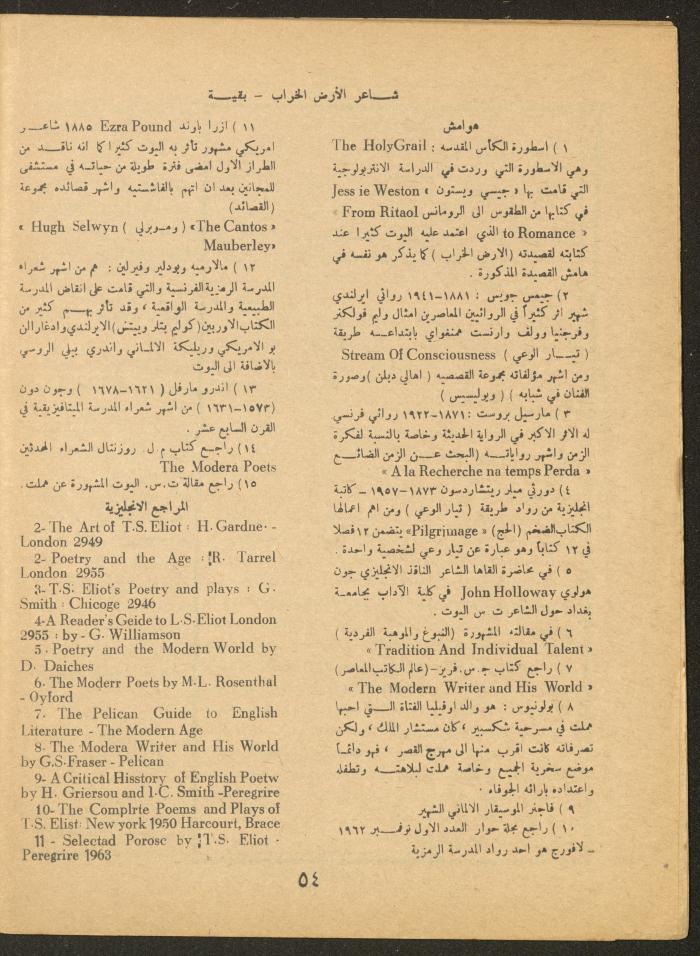 شاعر الأرض الخراب - بقية
هوامش
١ ) اسطورة الكأس المقدسه : The HolyGrail
وهي الاسطورة التي وردت في الدراسة الانتربولوجية
التي قامت بها « جيسي ويستون » Jess ie Weston
في كتابها من الطقوس الى الرومانس From Ritaol »
« to Romance الذي اعتمد عليه اليوت كثيرا عند
كتابته لقصيدته ( الارض الخراب ) كما يذكر هو نفسه في
هامش القصيدة المذكورة .
٢ ) جيمس جويس : ١٨٨١-١٩٤١ روائي ايرلندي
شهير اثر كثيراً في الروائيين المعاصرين امثال وليم فولكنر
وفرجنيا وولف وارنست همنغواي بابتداعه طريقة
( تيار الوعي ) Stream Of Consciousness
ومن اشهر مؤلفاته مجموعة القصصيه ( اهالي دبلن ) وصورة
الفنان في شبابه ) ( ويوليسيس )
٣ ) مارسيل بروست : ١٨٧١-١٩٢٢ روائي فرنسي
له الاثر الاكبر في الرواية الحديثة وخاصة بالنسبة لفكرة
الزمن واشهر رواياته ( البحث عن الزمن الضائع
« A la Recherche na temps Perda »
٤ ) دورثي ميلر ريتشاردسون ١٨٧٣-١٩٥٧ - كاتبة
انجليزية من رواد طريقة ( تيار الوعي ) ومن اهم اعمالها
الكتاب الضخم ( الحج ) «Pilgrimage» يتضمن ١٢ فصلا
في ١٢ كتاباً وهو عبارة عن تيار وعي لشخصية واحدة .
٥ ) في محاضرة القاها الشاعر الناقد الانجليزي جون
هولوي John Holloway في كلية الآداب بجامعة
بغداد حول الشاعر ت . س اليوت .
٦ ) في مقالته المشهورة ( النبوغ والموهبة الفردية )
« Tradition And Individual Talent »
٧ ) راجع كتاب ج . س . فريز - ( عالم الكاتب المعاصر )
« The Modern Writer and His World »
٨ ) بولونيوس : هو والد اوفيليا الفتاة التي احبها
هملت في مسرحية شكسبير ، كان مستشار الملك ، ولكن
تصرفاته كانت اقرب منها الى مهرج القصر ، فهو دائماً
موضع سخرية الجميع وخاصة هملت لبلاهته وتطفله
واعتداده بارائه الجوفاء .
٩ ) فاجنر الموسيقار الالماني الشهير
١٠ ) راجع مجلة حوار العدد الاول نوفمبر ١٩٦٢
- لافورج هو احد رواد المدرسة الرمزية
١١ ) ازرا باوند Ezra Pound ١٨٨٥ شاعر
امريكي مشهور تأثر به اليوت كثيرا كما انه ناقد من
الطراز الاول امضى فترة طويلة من حياته في مستشفى
للمجانين بعد ان اتهم بالفاشستيه واشهر قصائده مجموعة
( القصائد )
«The Cantos» ( وموبرلي ) Hugh Selwyn »
Mauberley»
١٢ ) مالارميه وبودلير وفيرلين : هم من اشهر شعراء
المدرسة الرمزية الفرنسية والتي قامت على انقاض المدرسة
الطبيعية والمدرسة الواقعية ، وقد تأثر بهم كثير من
الكتاب الاوربين ( كوليم بتلر وييتش ) الايرلندي وادغار الن
بو الامريكي وريليكة الالماني واندري بيلي الروسي
بالاضافة الى اليوت
١٣ ) اندرو مارفل ( ١٦٢١-١٦٧٨ ) وجون دون
( ١٥٧٣-١٦٣١ ) من اشهر شعراء المدرسة الميتافيزيقية في
القرن السابع عشر .
١٤ ) راجع كتاب م . ل . روزنتال الشعراء المحدثين
The Modera Poets
١٥ ) راجع مقالة ت . س . اليوت المشهورة عن هملت .
المراجع الانجليزية
2- The Art of T.S. Eliot : H. Gardne· -
London 2949
2- Poetry and the Age : R. Tarrel
London 2955
3- T.S: Eliot's Poetry and plays : G.
Smith : Chicoge 2946
4-A Reader's Geide to L.S.Eliot London
2955 : by - G. Williamson
5 . Poetry and the Modern World by
D. Daiches
6. The Moderr Poets by M.L. Rosenthal
- Oyford
7. The Pelican Guide to English
Literature - The Modern Age
8. The Modera Writer and His World
by G.S-Fraser - Pelican
9- A Critical Hisstory of English Poetw
by H. Griersou and I.C. Smith -Peregrire
10- The Complrte Poems and Plays of
T.S. Elist: New york 1950 Harcourt, Brace
11 - Selectad Porosc by T.S. Eliot -
Peregrire 1963
٥٤